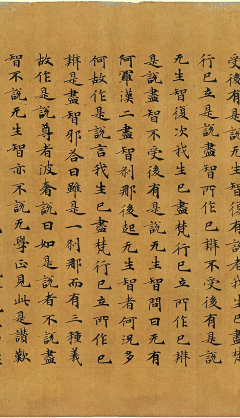 受後有是說無生智復有說者我生已盡梵
行已立是說盡智所作已辦不受後有是說
无生智復次我生已盡梵行已立所作已辦
是說盡智不受後有是說无生智問曰无有
阿羅漢二盡智剎那後起无生智者何況多
何故作是說言我生已盡梵行已立所作已
辦是盡智耶答曰雖是一剎那而有三種義
故作是說尊者波奢說曰如是說者不說盡
智不說无生智亦不說无學正見此是讚歎